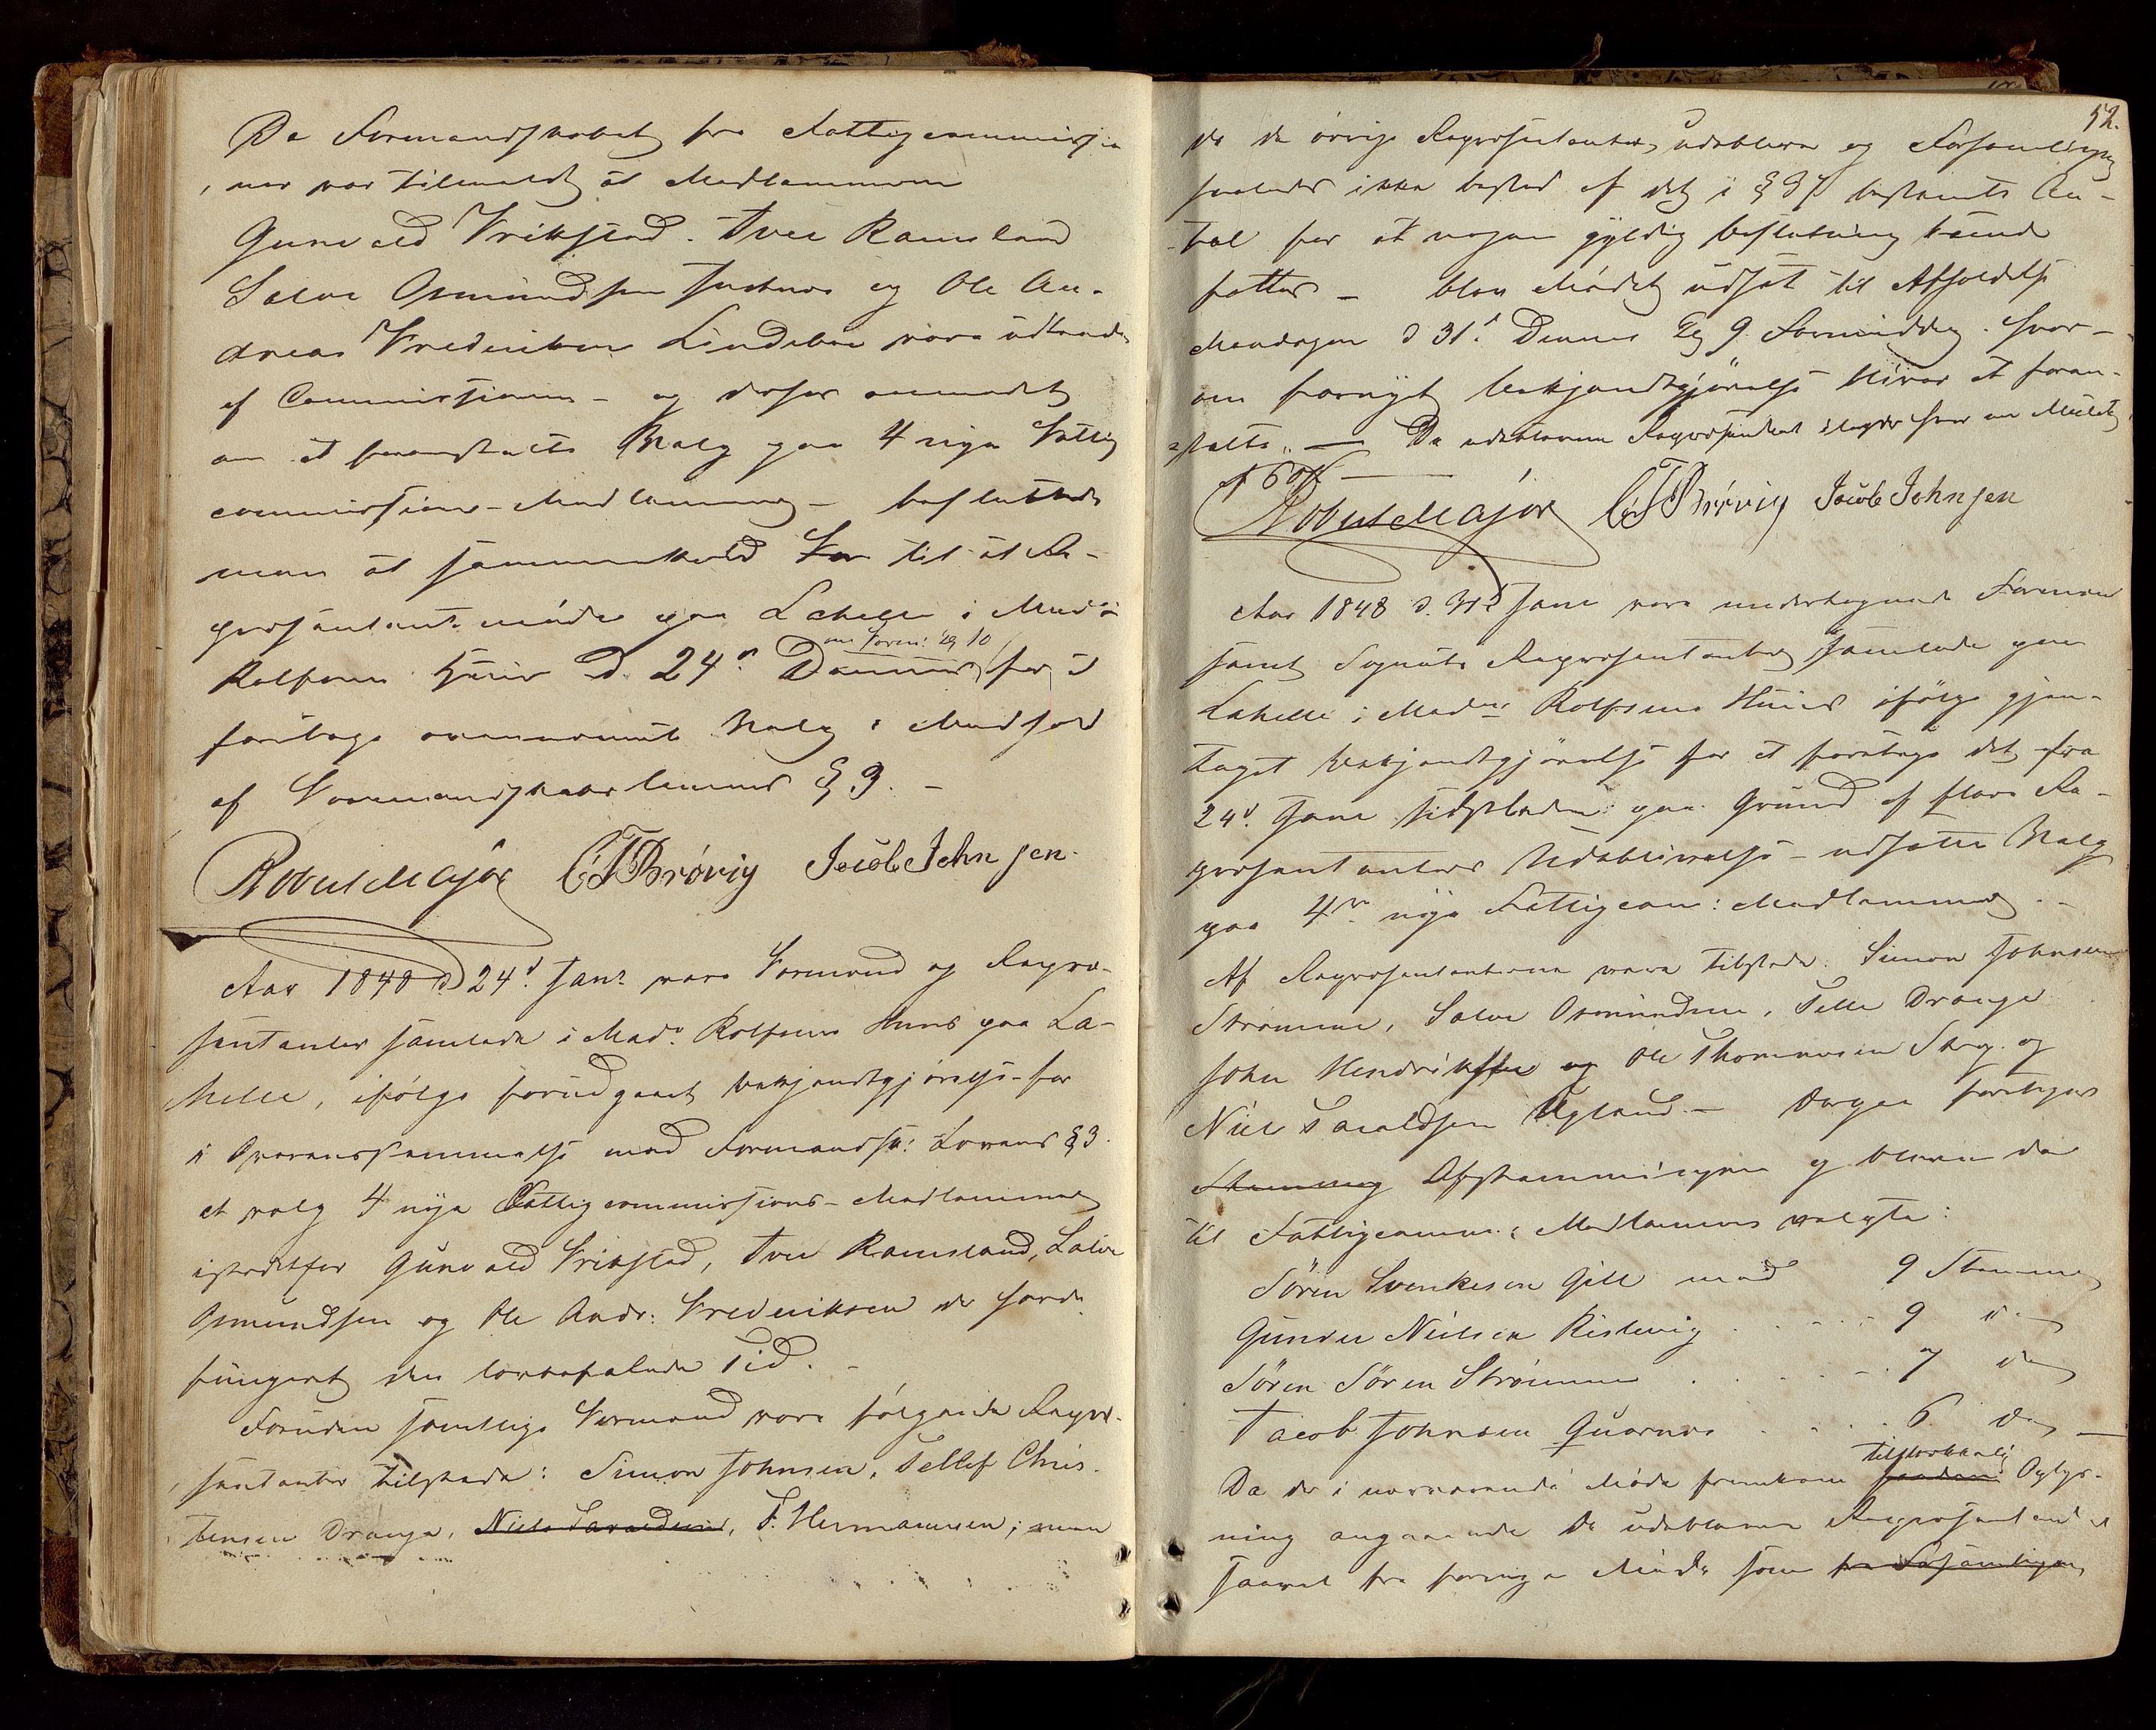 Da Formandskabet fra Fattigcommissio
nen var tilmeldt at Medlemmerne
Gunvald Vrikstad. Tver Ramsland
Salve Osmundsen Justnes og Ole An-
dreas Frederiksen Lindeboe vare udtraadt
af Commissionen – og derfor anmodet
om at foranstalte Valg paa 4 nye Fattig
commissions-Medlemmer – besluttede
man at sammenkald til at Re-
præsentant møde paa Lahelle i Mad.
Rolfsens Huus d. 24de Dennes for at
om Form: Kl 10
foretage ovennævnte Valg i Medhold
af Formandskabs lovens § 3. –
Robert Major CTBrøvig Jacob Johnsen
Aar 1848 d 24d Janr vare Formænd og Repræ-
sentanter samlede i Mad. Rolfsens Huus paa La-
helle, ifølge forudgaaet bekjendtgjørelse for
i Overensstemmelse med Formandsk: Lovens § 3.
at valg 4 nye Fattigcommissions-Medlemmer
istedetfor Gunvald Vrikstad, Tver Ramsland, Salve
Osmundsen og Ole Andr: Frederiksen der havde
fungeret den lovbefalede Tid. –
Foruden samtlige Formænd vare følgende Repræ-
sentanter tilstæde: Simon Johnsen, Tellef Chris-
tensen Drange, Niels Taraldsen, T. Hermannsen; men
52.
da de øvrige Repræsentanter udebleve og Forsamlingen
saaledes ikke bestod af det i § 37 bestemte An-
tal for at nogen gyldig beslutning kunde
fattes – blev Mødet udsat til Afholdelse
Mandagen d 31d Dennes Kl 9 Formiddag. hvor-
om fornyet bekjendtgjørelse bliver at foran-
stalte. — De udeblevne Repræsentanter ilægges hver en Mulct
af 60 ß —
Robert Major CTBrøvig Jacob Johnsen
Aar 1848 d. 31d Jane vare undertegnede Formænd
samt Sognets Repræsentanter samlede paa
Lahelle i Madm Rolfsens Huus ifølge gjen-
taget bekjendtgjørelse for at foretage det fra
24d. Jane paa Grund af flere Re-
præsentanters Udeblivelse – udsatte Valg
paa 4re nye Fattigcom: Medlemmer. –
Af Repræsentanterne vare tilstæde: Simon Johnsen
Strømme, Salve Osmundsen, Telle Drange
John Hendriksen og Ole Thommesen Skog. og
Niel Taraldsen Ugland. – Derpaa foretoges
Stemning Afstemningen og bleve da
til Fattigcomm: Medlemmer valgte:
Søren Svenkesen Gill med 9 Stemmer
Gunder Nielsen Ristevig . . . . . 9 "
Søren Sören Strømme . . . . . 7 do
Jacob Johnsen Quarnes . . . . 6 do —
tilstrækkelig
Da der i nærværende Møde fremkom saadan Oplys-
ning angaaende de udeblevne Repræsentanter
saavel fra forrige Møde som fra Forsamlingen